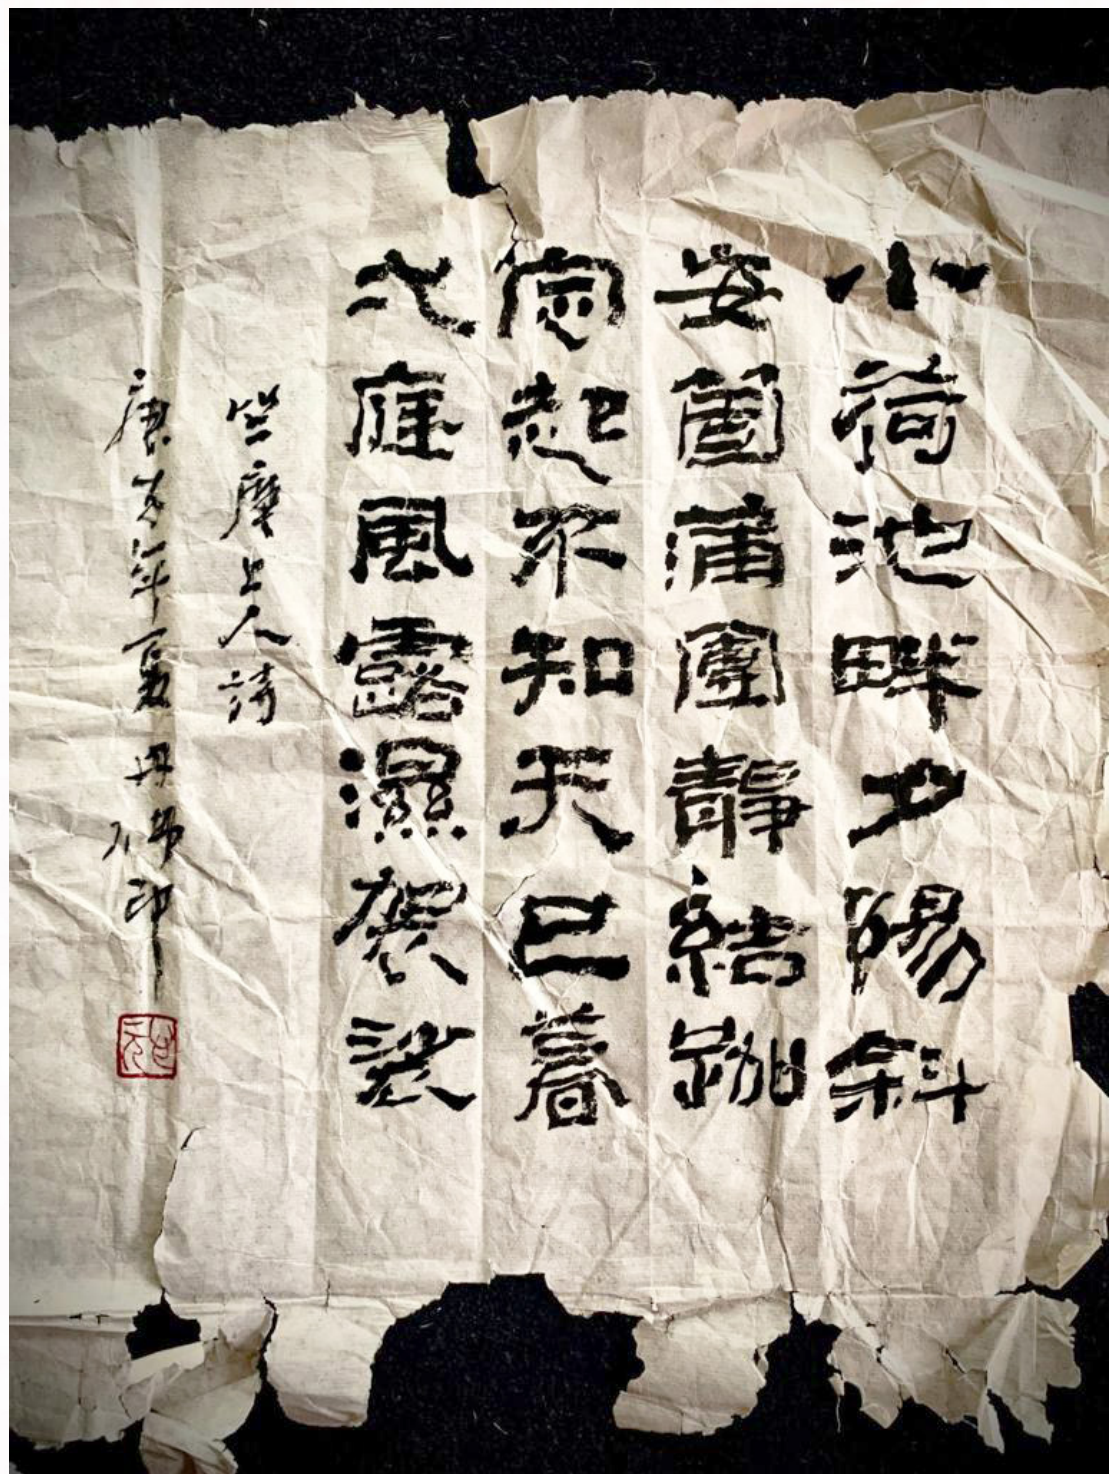 小荷池畔夕陽斜
安箇蒲團靜結跏
定起不知天已暮
弌庭風露濕袈裟
竺摩上人詩
年夏